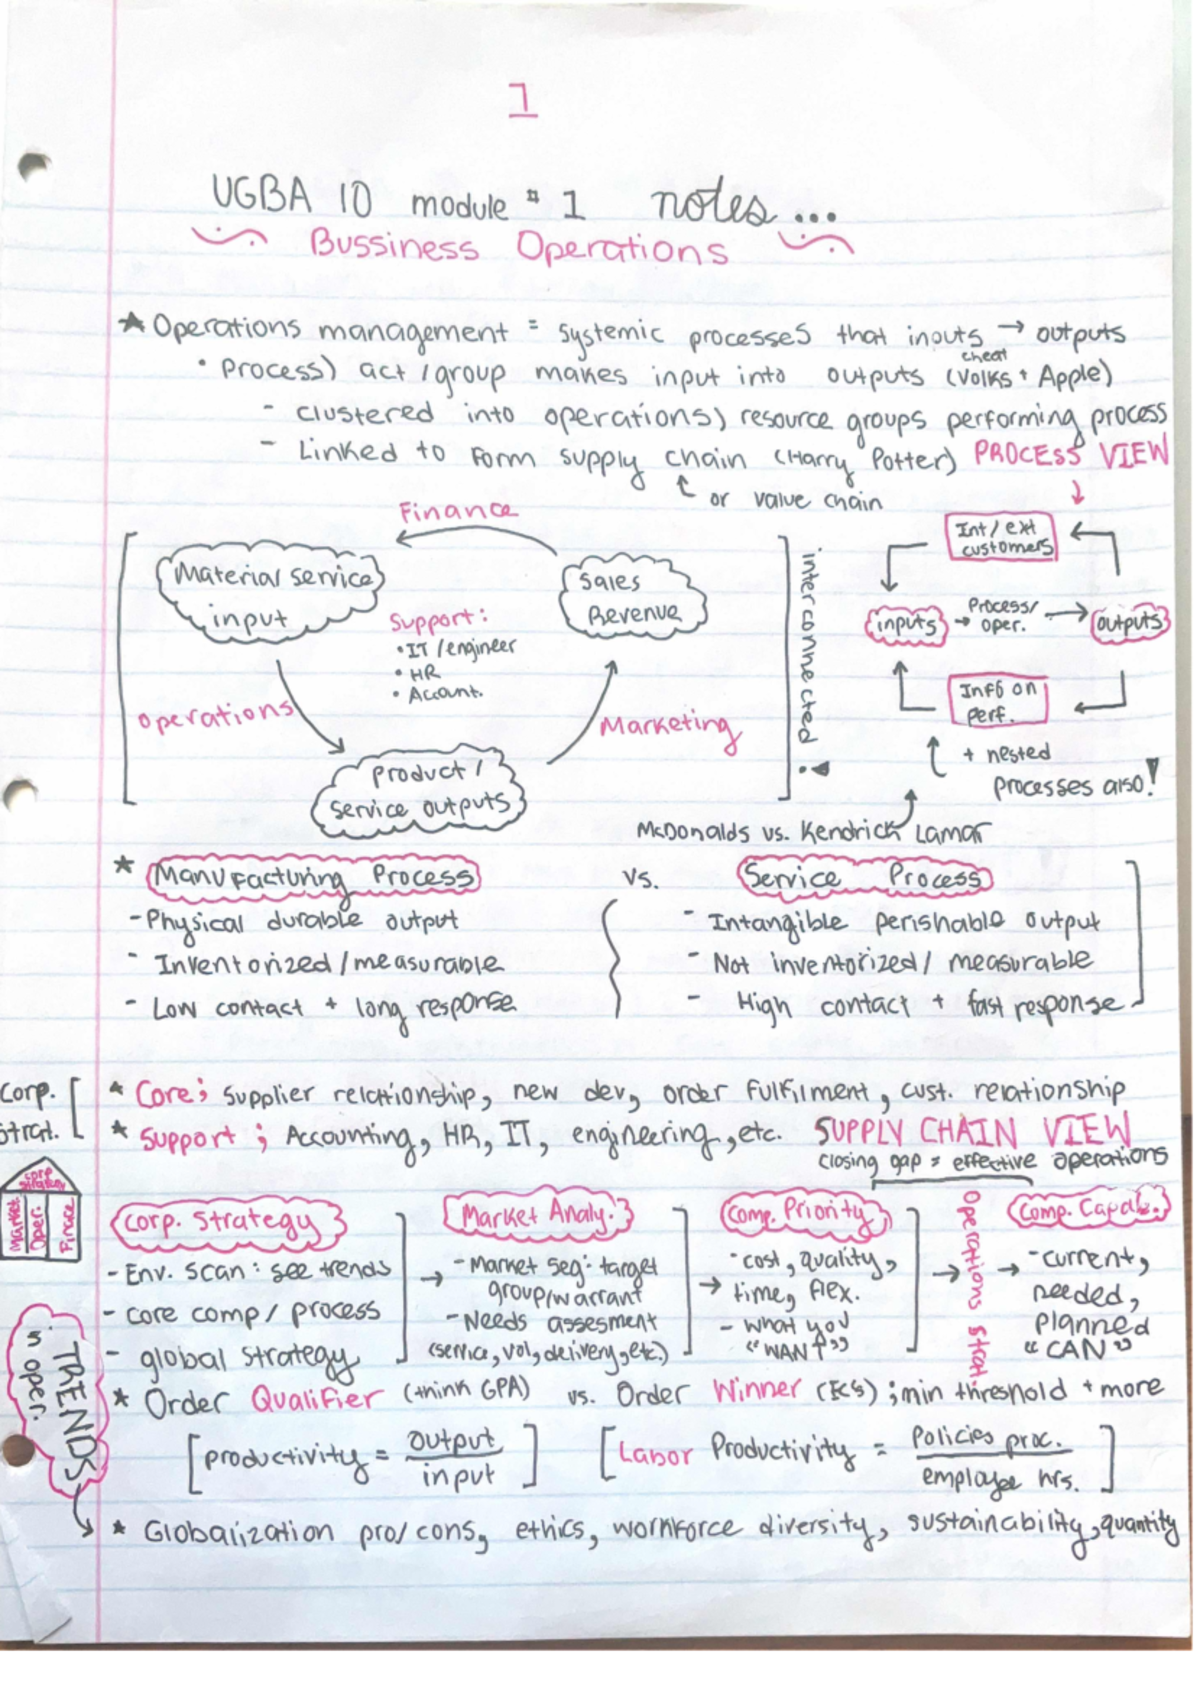 1
UGBA 10 module # 1 notes...
Bussiness Operations
★ Operations management = systemic processes that inputs → outputs
• Process) act / group makes input into outputs (Volks + Apple)
cheat
- clustered into operations) resource groups performing process
- Linked to form supply chain (Harry Potter) PROCESS VIEW
or value chain
Finance
Material service
input
Sales
Revenue
Support:
• IT / engineer
• HR
• Account.
Operations
Marketing
product /
service outputs
interconnected!
Int/ext
customers
inputs → Process/
oper. → outputs
Info on
perf.
+ nested
processes also!
McDonalds vs. Kendrick Lamar
★ Manufacturing Process vs. Service Process
- Physical durable output
- Inventorized / measurable
- Low contact + long response
- Intangible perishable output
- Not inventorized / measurable
- High contact + fast response
Corp.
strat.
★ Core; supplier relationship, new dev, order fulfilment, cust. relationship
★ Support; Accounting, HR, IT, engineering, etc. SUPPLY CHAIN VIEW
closing gap = effective operations
corp
strategy
Market.
Oper.
Finace
Corp. Strategy
- Env. scan: see trends
- core comp / process
- global strategy
Market Analy.
- Market seg: target
group/warrant
- Needs assesment
(service, vol, delivery, etc.)
Comp. Priority
- cost, quality,
time, flex.
- what you
"WANT"
Operations strat.
Comp. Capab.
- current,
needed,
planned
"CAN"
TRENDS
in oper.
★ Order Qualifier (think GPA) vs. Order Winner (ECs); min threshold + more
[productivity = output
input]
[Labor Productivity = Policies proc.
employee hrs.]
★ Globalization pro/cons, ethics, workforce diversity, sustainability, quantity